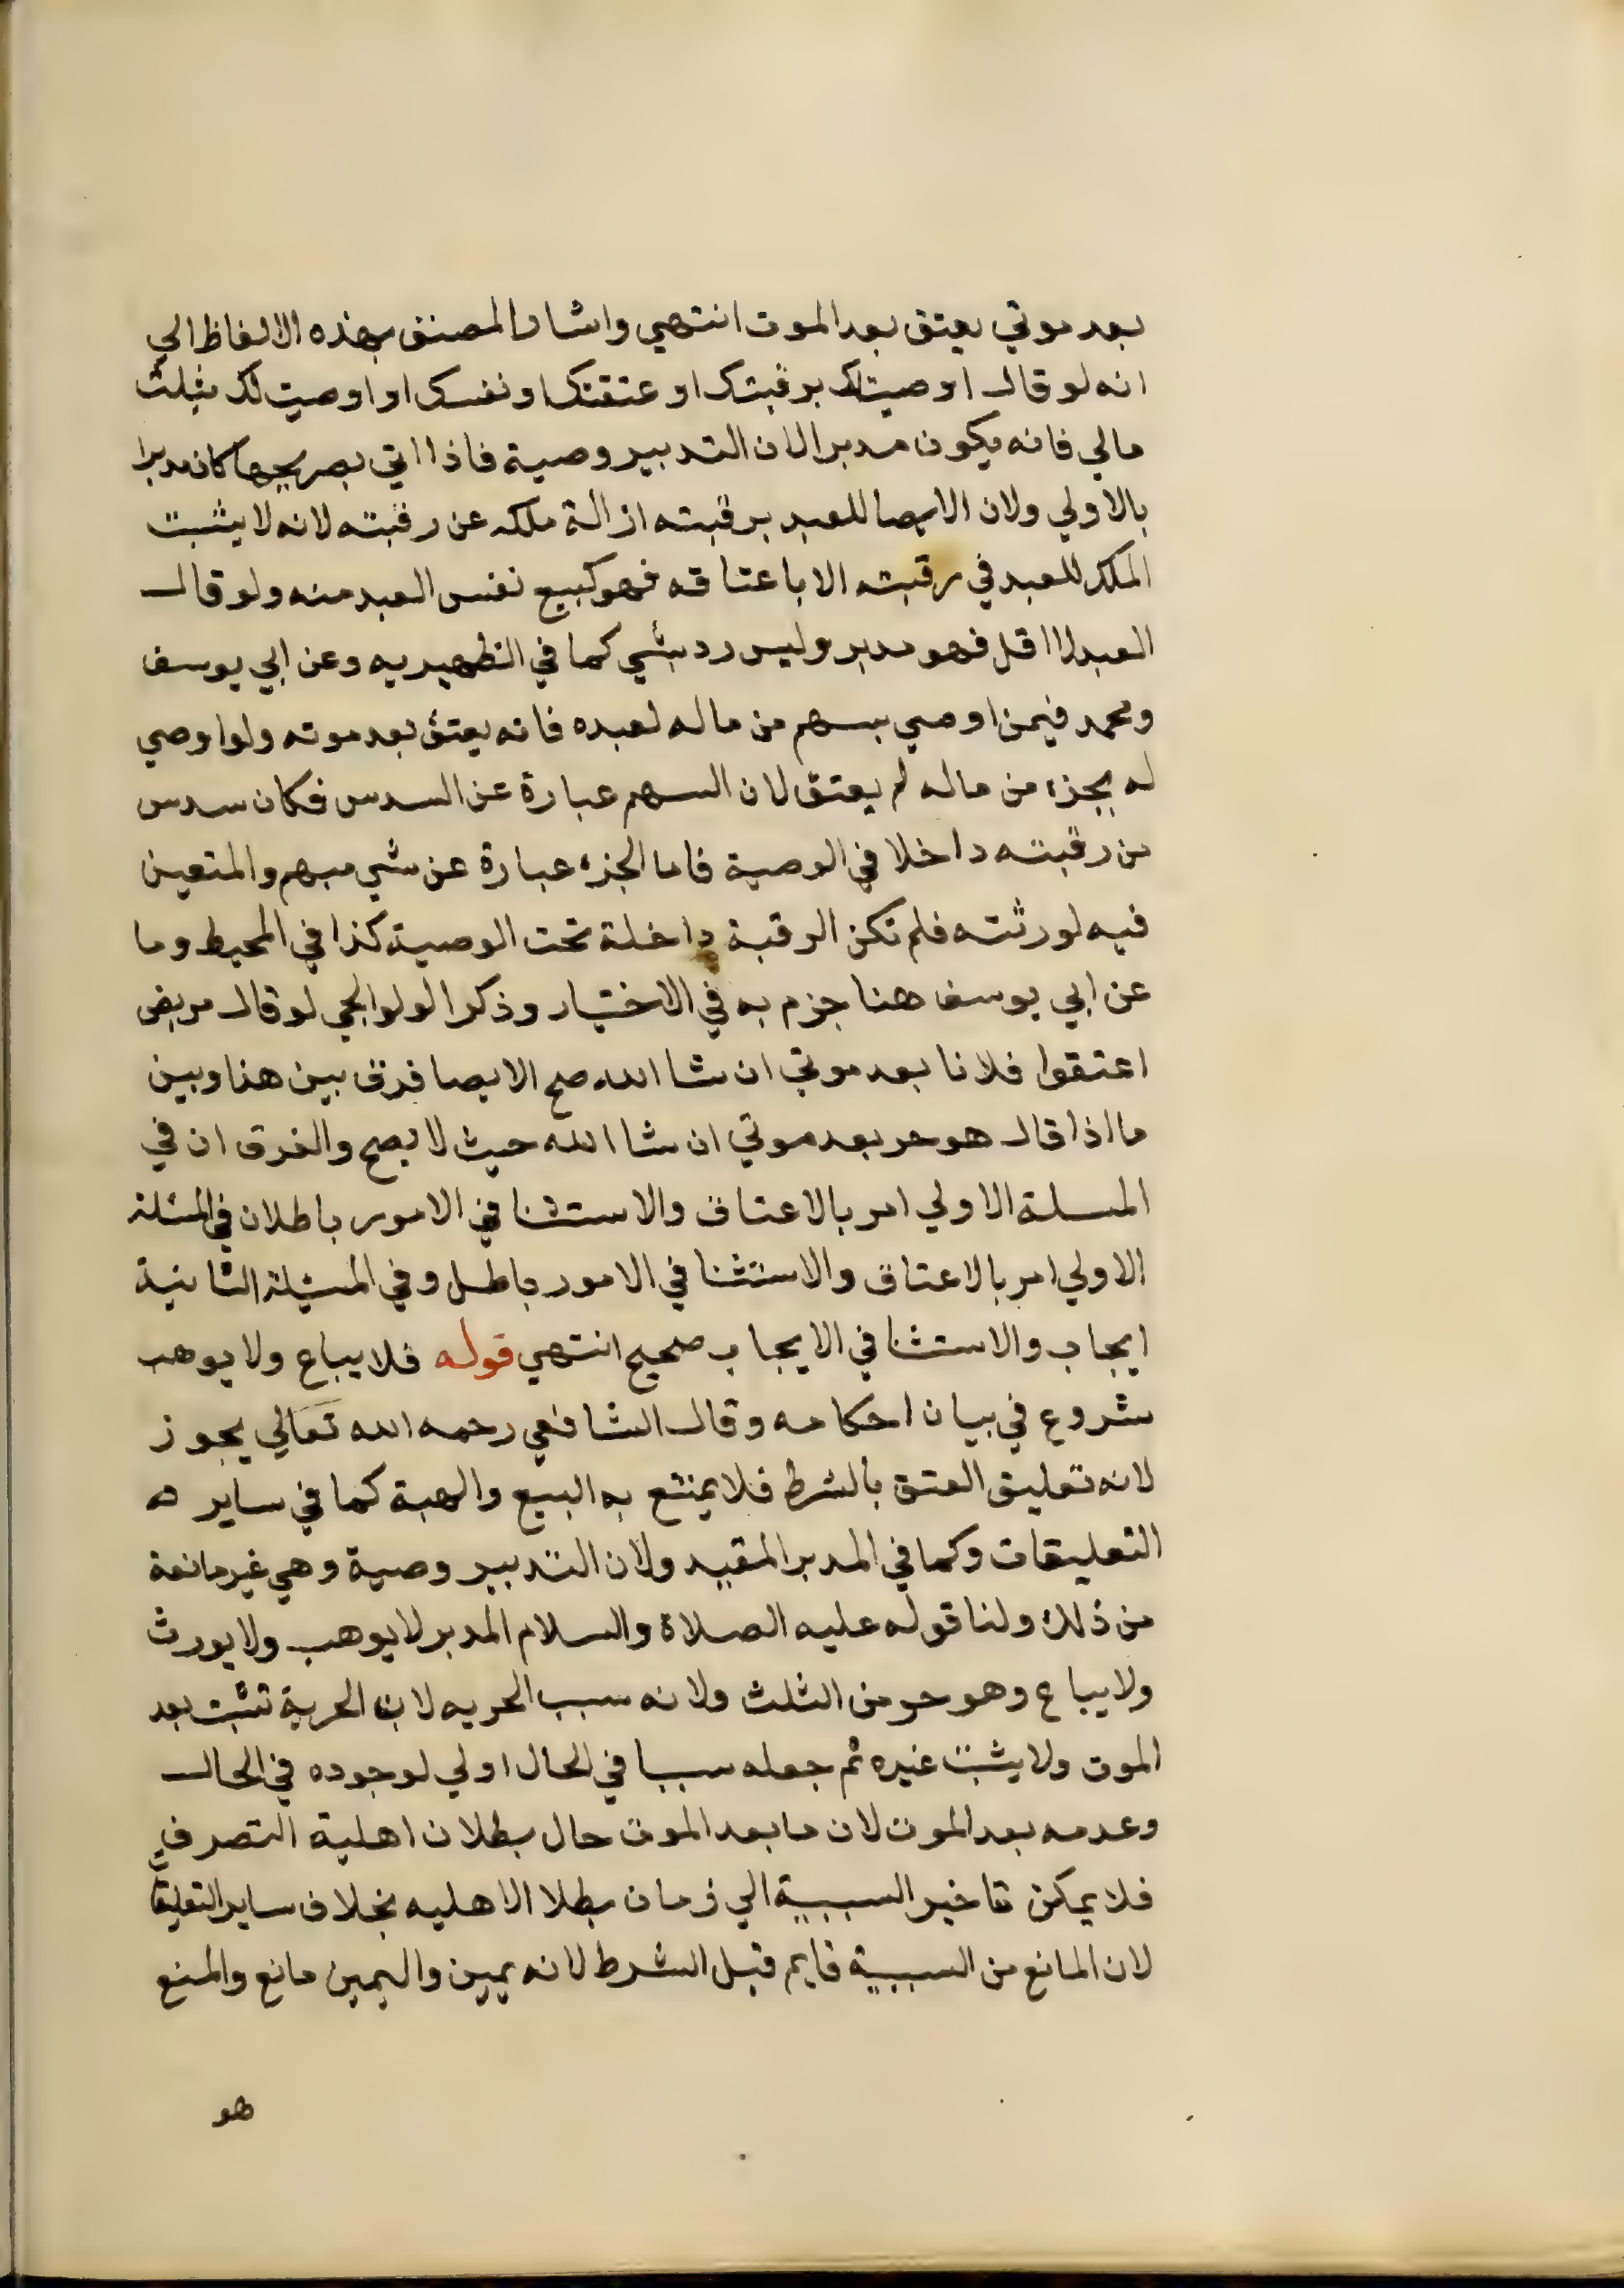 بعد موتي يعتق بعد الموت انتهي واشار المصنف بهذه الالفاظ الي
انه لو قال اوصيت لك برقبتك او عتقتك او نفسك او اوصيت لك بثلث
مالي فانه يكون مدبرا لان التدبير وصية فاذا اتي بصريحها كان مدبرا
بالاولي ولان الايصا للعبد برقبته ازالة ملكه عن رقبته لانه لا يثبت
الملك للعبد في رقبته الا باعتاقه فهو كبيع نفس العبد منه ولو قال
العبد لا اقل فهو مدبر وليس رد بشي كما في الظهيريه وعن ابي يوسف
ومحمد فيمن اوصي بسهم من ماله لعبده فانه يعتق بعد موته ولو اوصي
له بجزء من ماله لم يعتق لان السهم عبارة عن السدس فكان سدس
من رقبته داخلا في الوصية فاما الجزء عبارة عن شي مبهم والمتعين
فيه لورثته فلم تكن الرقبة داخلة تحت الوصية كذا في المحيط وما
عن ابي يوسف هنا جزم به في الاختيار وذكر الولوالجي لو قال مريض
اعتقوا فلانا بعد موتي ان شا الله صح الايصا فرق بين هذا وبين
ما اذا قال هو حر بعد موتي ان شا الله حيث لا يصح والفرق ان في
المسلة الاولي امر بالاعتاق والاستثنا في الامور باطلان في المسئلة
الاولي امر بالاعتاق والاستثنا في الامور باطل وفي المسئلة الثانية
ايجاب والاستثنا في الايجاب صحيح انتهي قوله فلا يباع ولا يوهب
شروع في بيان احكامه وقال الشافعي رحمه الله تعالي يجوز
لانه تعليق العتق بالشرط فلا يمتنع به البيع والهبة كما في ساير ه
التعليقات وكما في المدبر المقيد ولان التدبير وصية وهي غير مانعة
من ذلك ولنا قوله عليه الصلاة والسلام المدبر لا يوهب ولا يورث
ولا يباع وهو حر من الثلث ولانه سبب الحريه لان الحرية تثبت بعد
الموت ولا يثبت غيره ثم جعله سببا في الحال اولي لوجوده في الحال
وعدمه بعد الموت لان ما بعد الموت حال بطلان اهلية التصرف
فلا يمكن تاخير السببية الي زمان بطلا الاهليه بخلاف ساير التعليقات
لان المانع من السببية قايم قبل الشرط لانه يمين واليمين مانع والمنع
هو